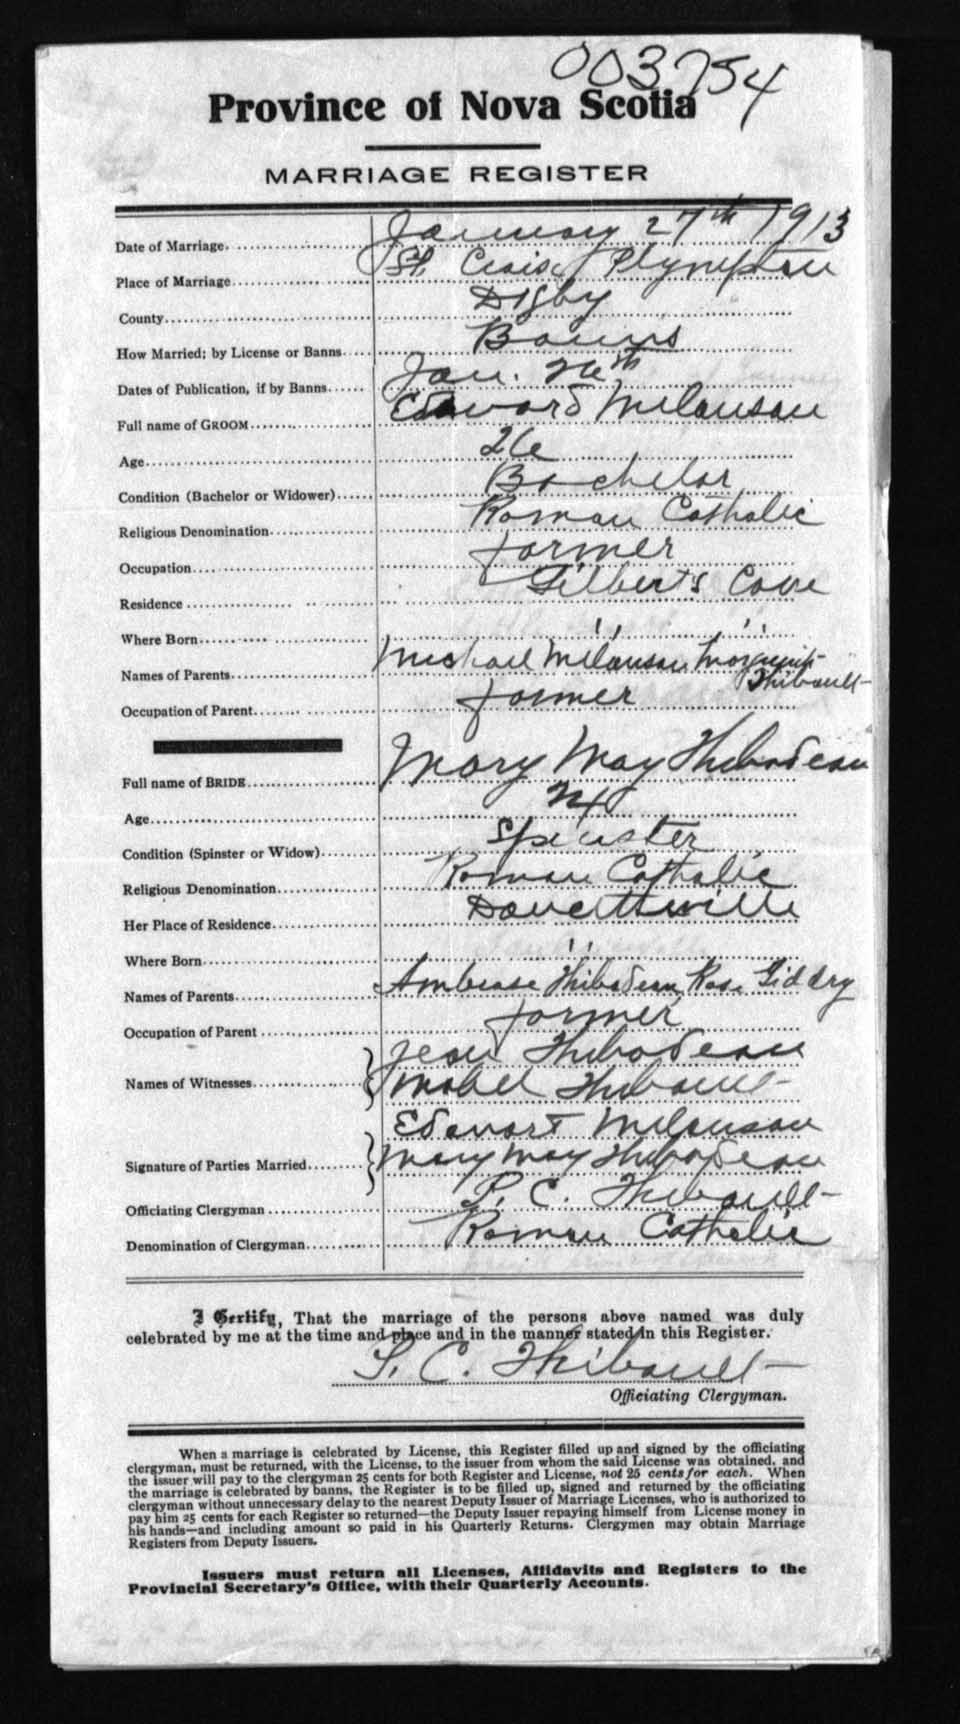 003754
Province of Nova Scotia
MARRIAGE REGISTER
Date of Marriage. January 27th 1913
Place of Marriage St. Croix Plympton
County Digby
How Married; by License or Banns Banns
Dates of Publication, if by Banns Jan. 26th
Full name of GROOM Edward Melanson
Age 26
Condition (Bachelor or Widower) Bachelor
Religious Denomination Roman Catholic
Occupation farmer
Residence Gilberts Cove
Where Born " "
Names of Parents Michael Melanson
Thibault
Occupation of Parent farmer
Full name of BRIDE Mary May Thibodeau
Age 24
Condition (Spinster or Widow) Spinster
Religious Denomination Roman Catholic
Her Place of Residence Doucettville
Where Born "
Names of Parents Ambrose Thibodeau, Rose Giddry
Occupation of Parent farmer
Jean Thibodeau
Names of Witnesses Mabel Thibault
Edward Melanson
Signature of Parties Married Mary May Thibodeau
Officiating Clergyman C. Thibault
Denomination of Clergyman Roman Catholic
I Certify, That the marriage of the persons above named was duly
celebrated by me at the time and place and in the manner stated in this Register.
C. Thibault
Officiating Clergyman.
When a marriage is celebrated by License, this Register filled up and signed by the officiating
clergyman, must be returned, with the License, to the issuer from whom the said License was obtained, and
the issuer will pay to the clergyman 25 cents for both Register and License, not 25 cents for each. When
the marriage is celebrated by banns, the Register is to be filled up, signed and returned by the officiating
clergyman without unnecessary delay to the nearest Deputy Issuer of Marriage Licenses, who is authorized to
pay him 25 cents for each Register so returned—the Deputy Issuer repaying himself from License money in
his hands—and including amount so paid in his Quarterly Returns. Clergymen may obtain Marriage
Registers from Deputy Issuers.
Issuers must return all Licenses, Affidavits and Registers to the
Provincial Secretary's Office, with their Quarterly Accounts.